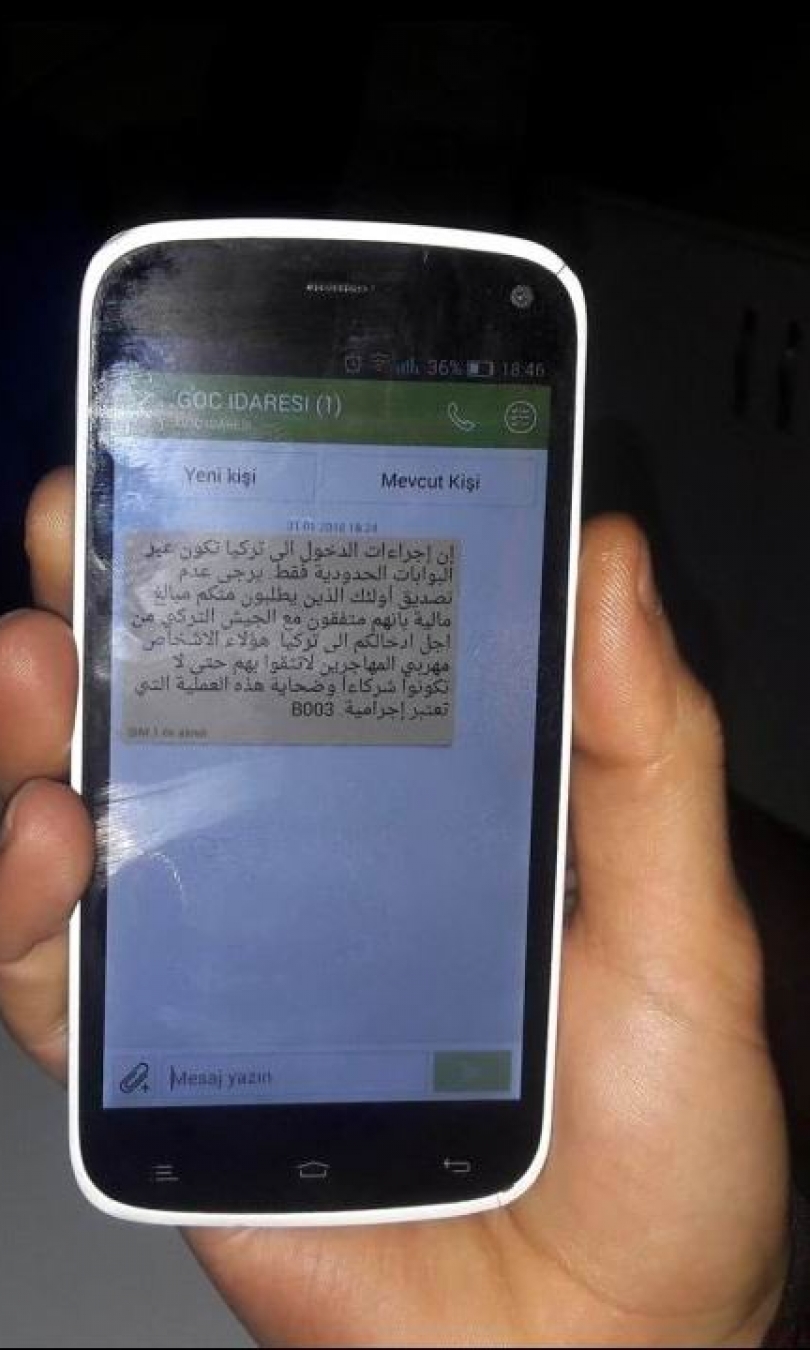 36% 18:46
GOC IDARESI (1)
GOC IDARESI
Yeni kişi
Mevcut Kişi
إن إجراءات الدخول الى تركيا تكون عبر
البوابات الحدودية فقط. يرجى عدم
تصديق أولئك الذين يطلبون منكم مبالغ
مالية بانهم متفقون مع الجيش التركي من
اجل ادخالكم الى تركيا. هؤلاء الاشخاص
مهربي المهاجرين لاتثقوا بهم حتى لا
تكونوا شركاءا وضحاية هذه العملية التي
تعتبر إجرامية. B003
Mesaj yazın